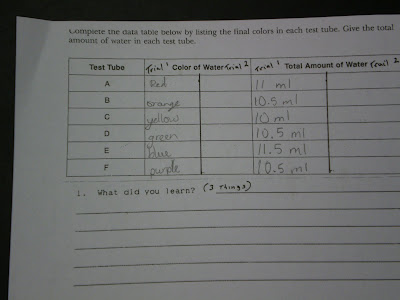 Complete the data table below by listing the final colors in each test tube. Give the total
amount of water in each test tube.
Test Tube Trial 1 Color of Water Trial 2 Trial 1 Total Amount of Water Trail 2
A Red 11 ml
B orange 10.5 ml
C yellow 10 ml
D green 10.5 ml
E blue 11.5 ml
F purple 10.5 ml
1. What did you learn? (3 Things)